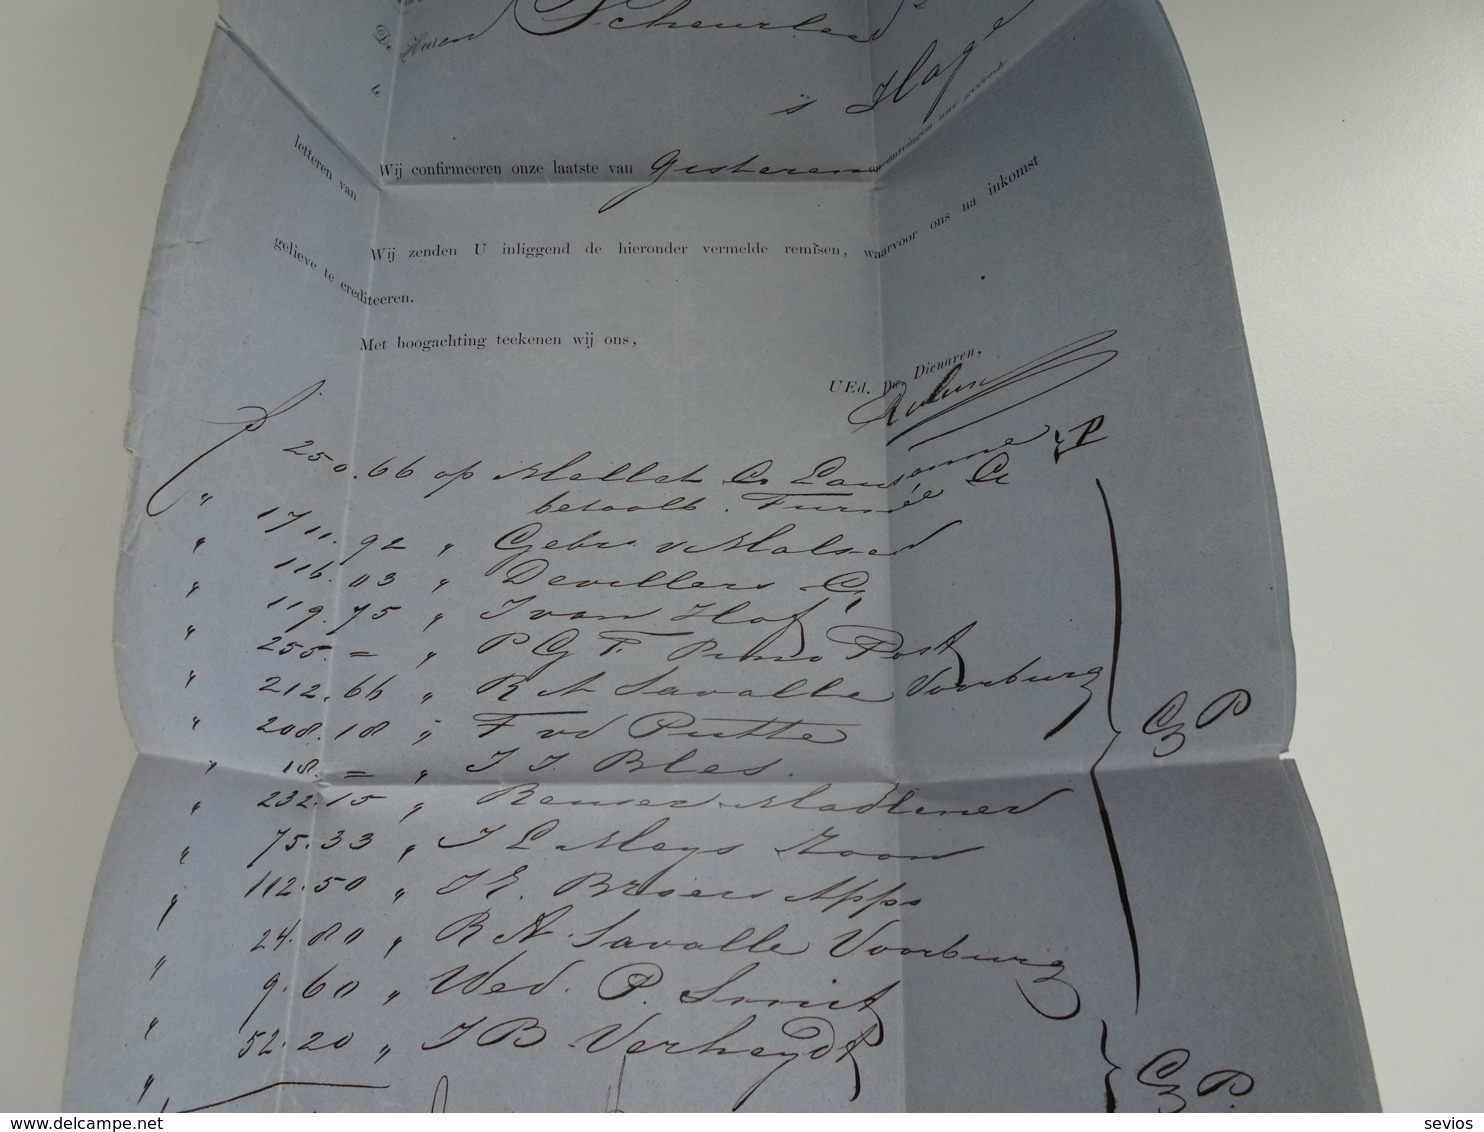 De Heeren Scheurleer
te 's Hage
Wij confirmeeren onze laatste van Gisteren en ontvingen uwe geëerde
letteren van
Wij zenden U inliggend de hieronder vermelde remisen, waarvoor ons na inkomst
gelieve te crediteeren.
Met hoogachting teekenen wij ons,
UEd. Dw. Dienaren,
ƒ 250.66 op Mallet Co Lausanne P
betaalb. Furnée Co
" 1711.92 " Gebr. v Malsen
" 116.03 " Devillers C
" 119.75 " J van Hof
" 255.= " P G F Primo Post
" 212.66 " R A Savalle Voorburg
" 208.18 " F vd Putte
" 18.= " J J. Bles.
" 232.15 " Madlener
" 75.33 " J L Meys Zoon
" 112.50 " J E. Broers Apps
" 24.80 " R A. Savalle Voorburg
" 9.60 " Wed. P. Smit
" 52.20 " J B Verheydt
G P
G P.
www.delcampe.net
sevios